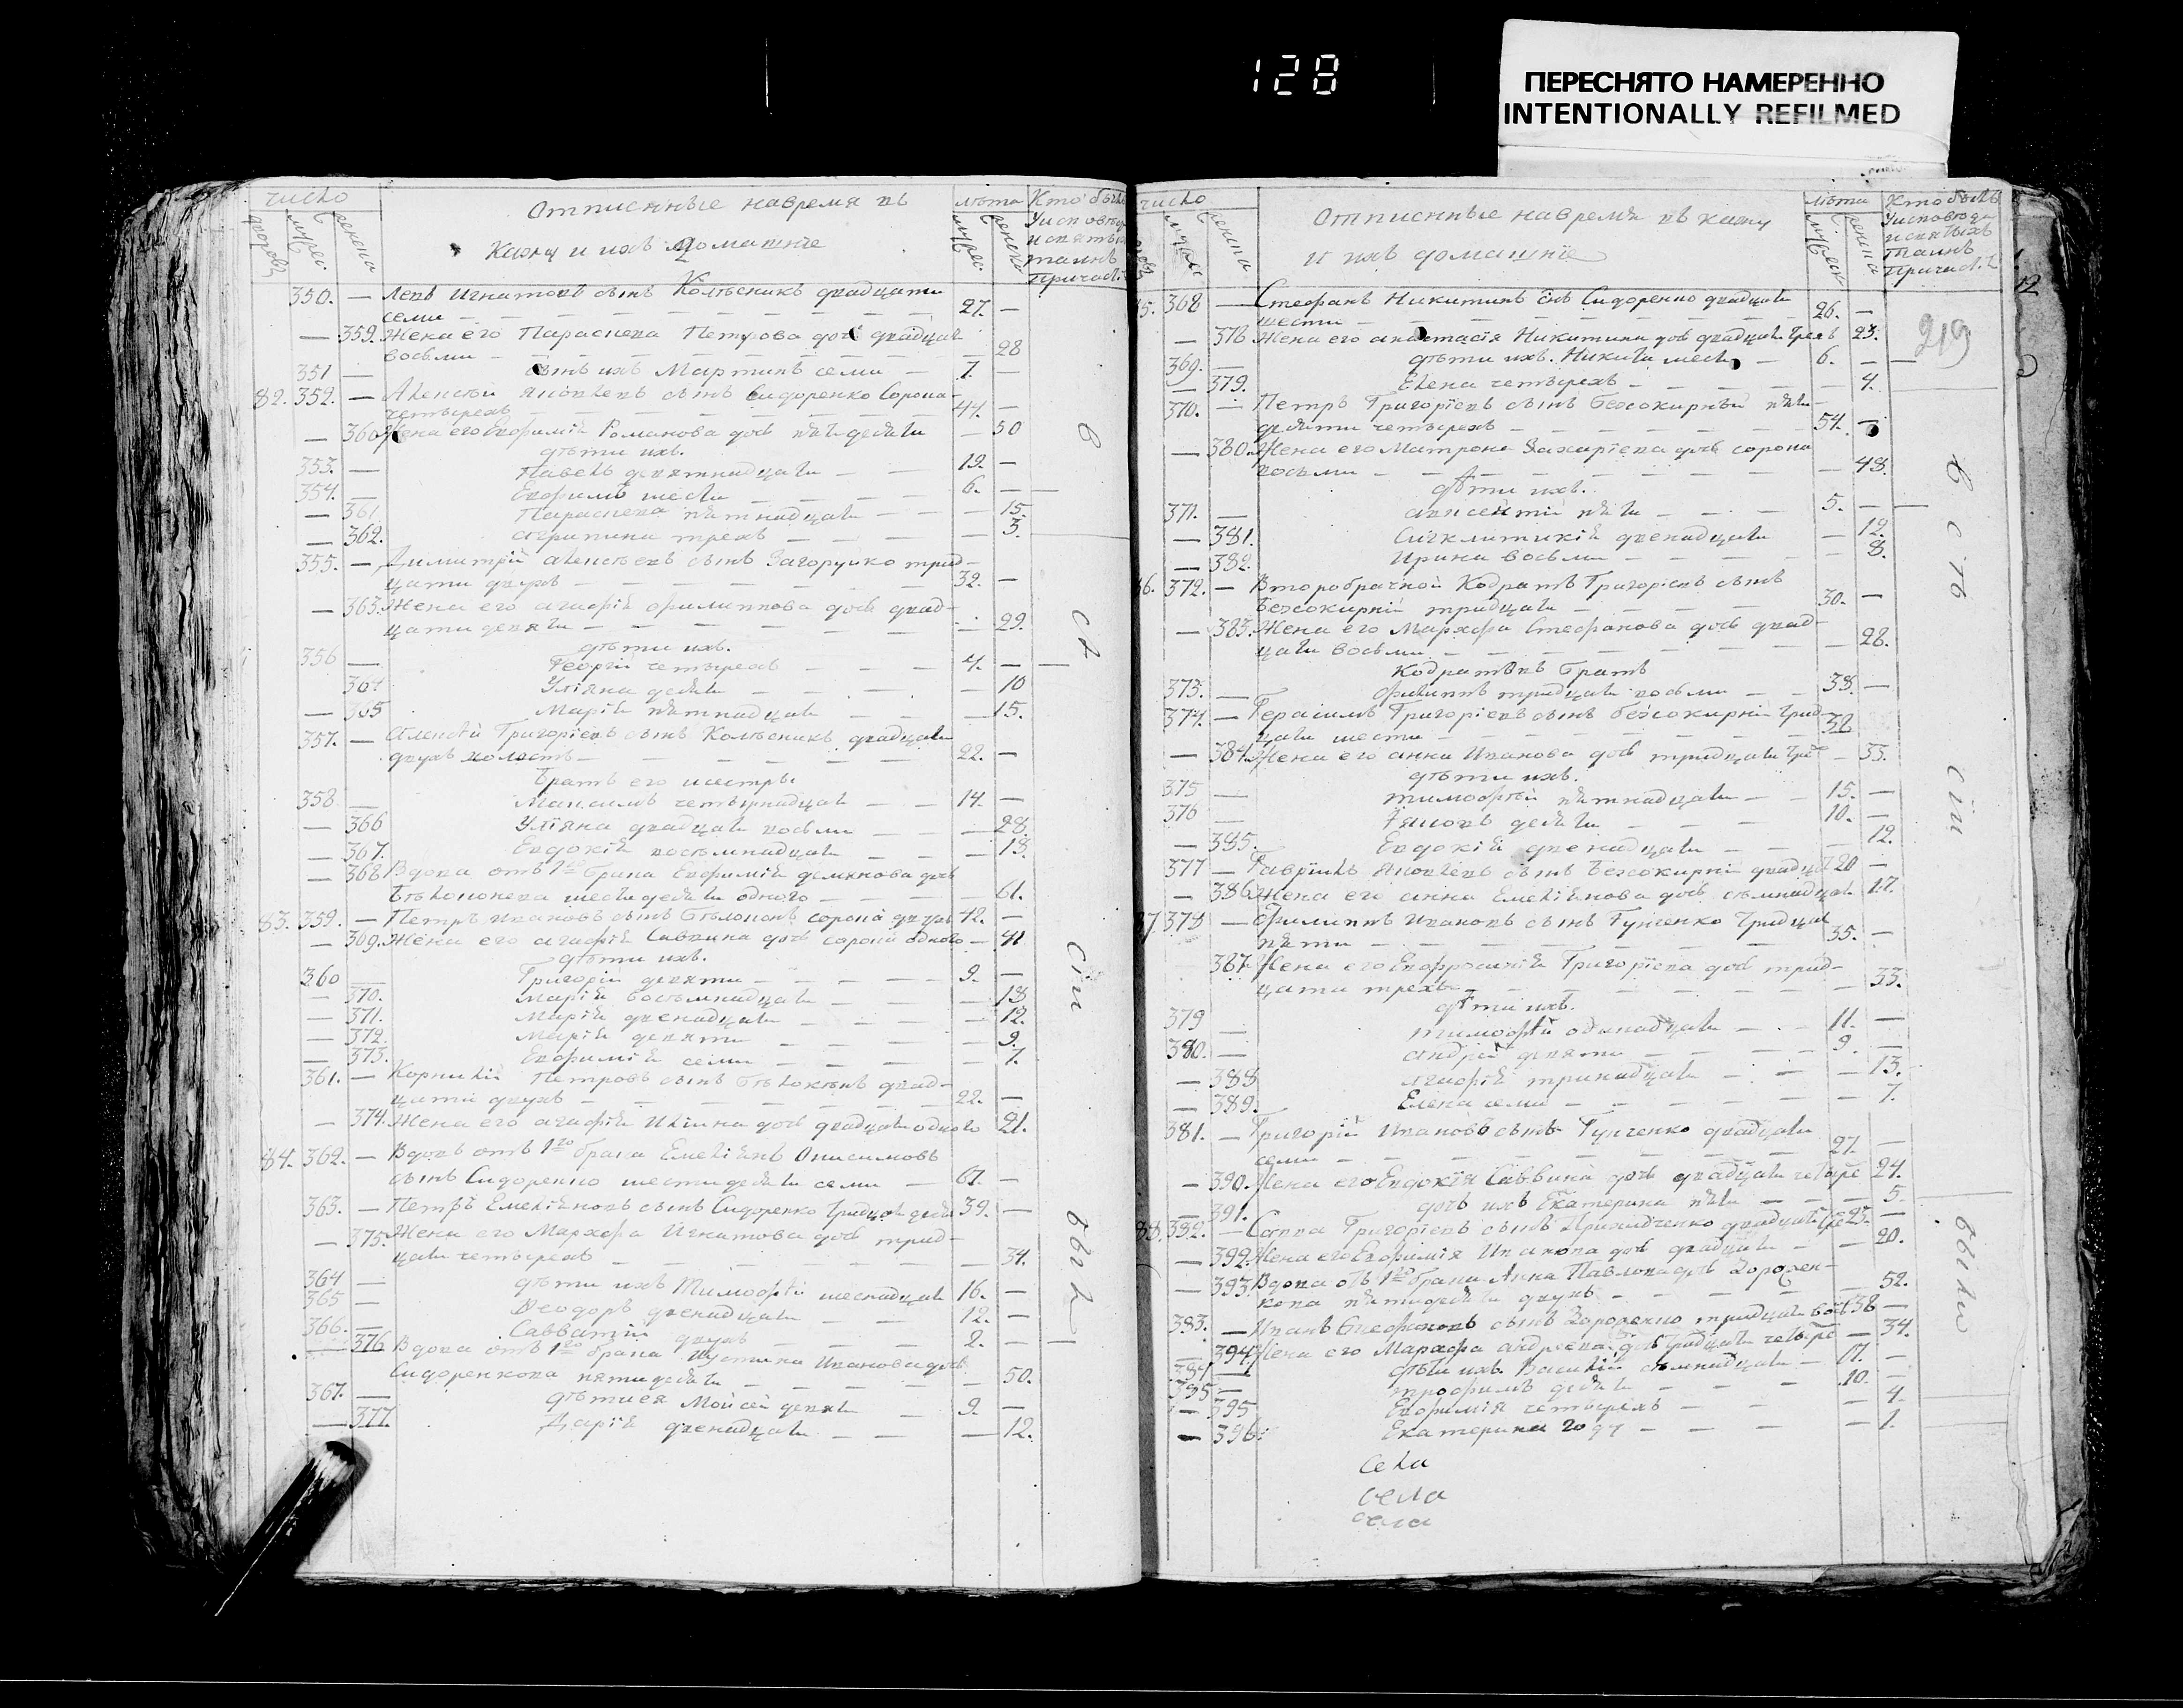 128
ПЕРЕСНЯТО НАМЕРЕННО
INTENTIONALLY REFILMED
число
дворовъ мужес. женска
Отписнные навремя въ
Казну и ихъ домашнïе
лѣта
мужес. женска
Кто былъ
У исповѣди
и святыхъ
таинъ
причаст.
350. — Левъ Игнатовъ сынъ Колѣсникъ двадцати
семи — 27. —
— 359. Жена его Параскева Петрова дочь двадцати
восьми — 28
351 — сынъ ихъ Мартинъ семи — 7. —
82. 352. — Алексѣй Яковлевъ сынъ Сидоренко сорока
четырехъ — 44. —
— 360 Жена его Евфимія Романова дочь пятидесяти — 50
дѣти ихъ.
353. — Павелъ девятнадцати — 19. —
354. — Евфимъ шести — 6. —
— 361. Параскева пятнадцати — 15.
— 362. Агрипина трехъ — 3.
355. — Димитрій Алексѣевъ сынъ Загоруйко трид-
цати двухъ — 32. —
— 363. Жена его Агафія Филиппова дочь двад-
цати девяти — 29.
дѣти ихъ.
356 — Георгій четырехъ — 4. —
364 Уліяна десяти — 10
— 365 Марія пятнадцати — 15.
357. — Алексѣй Григоріевъ сынъ Колѣсникъ двадцати
двухъ холостъ — 22. —
братъ его и сестры.
358 — Максимъ четырнадцати — 14. —
— 366 Уліяна двадцати восьми — 28.
— 367. Евдокія восьмнадцати — 18.
— 368 Вдова отъ 1го брака Евфимія Демянова дочь
Бѣлоконева шестидесяти одного — 61.
83. 359. — Петръ Ивановъ сынъ Бѣлоконь сорока двухъ 42. —
— 369. Жена его Агафія Саввина дочь сорока одного — 41
дѣти ихъ.
360 — Григорій девяти — 9. —
— 370. Марія восьмнадцати — 18
— 371. Марія двенадцати — 12.
— 372. Марія девяти — 9.
— 373. Евфимія семи — 7.
361. — Корнилій Петровъ сынъ Бѣлоконь двад-
цати двухъ — 22. —
— 374. Жена его Агафія Иліина дочь двадцати одного 21.
84. 362. — Вдовъ отъ 1го брака Емеліянъ Онисимовъ
сынъ Сидоренко шестидесяти семи — 67. —
363. — Петръ Емеліяновъ сынъ Сидоренко тридцати девя 39. —
— 375. Жена его Марфа Игнатова дочь трид-
цати четырехъ — 34.
364 — дѣти ихъ Тимофей шеснадцати 16. —
365 — Ѳеодоръ двенадцати — 12. —
366. — Савватій двухъ — 2. —
— 376 Вдова отъ 1го брака Иустина Иванова дочь
Сидоренкова пятидесяти — 50.
367. — дѣти ея Мойсей девяти — 9. —
— 377. Дарія двенадцати — 12.
число
мужес. женска
Отписнные навремя въ казну
и ихъ домашнïе
лѣта
Кто былъ
У исповѣди
и святыхъ
Таинъ
Причаст.
219
5. 368 — Стефанъ Никитинъ снъ Сидоренко двадцати
шести — 26. —
— 378 Жена его Анастасія Никитина дочь двадцати трехъ 23.
369. — дѣти ихъ. Никита шести — 6. —
— 379. Елена четырехъ — 4.
370. — Петръ Григоріевъ сынъ Безсокирный пяти-
десяти четырехъ — 54. —
— 380. Жена его Матрона Захаріева дочь сорока
восьми — 48.
дѣти ихъ.
371. — Авксентій пяти — 5. —
— 381. Сигклитикія двенадцати — 12.
— 382. Ирина восьми — 8.
6. 372. — Второбрачной Кодратъ Григоріевъ сынъ
Безсокирній тридцати — 30. —
— 383. Жена его Марфа Стефанова дочь двад-
цати восьми — 28.
Кодратовъ братъ
373. — Филиппъ тридцати восьми — 38. —
374. — Герасимъ Григоріевъ сынъ безсокирній трид-
цати шести — 36
— 384. Жена его Анна Иванова дочь тридцати трех — 33.
дѣти ихъ.
375 — Тимофѣй пятнадцати — 15. —
376 — Яковъ десяти — 10. —
— 385. Евдокія двенадцати — 12.
377 — Гавріилъ Яковлевъ сынъ Безсокирній двадцат 20 —
— 386 Жена его Анна Емеліянова дочь семнадцат. 17.
7. 378 — Филиппъ Ивановъ сынъ Гунченко тридцат
пяти — 35. —
387. Жена его Евфросинія Григоріева дочь трид-
цати трехъ — 33.
дѣти ихъ.
379 — Тимофѣй одинадцати — 11. —
380. — Андрей девяти — 9. —
— 388 Агафія тринадцати — 13.
— 389. Елена семи — 7.
381. — Григорій Ивановъ сынъ Гунченко двадцати
семи — 27. —
— 390. Жена его Евдокїя Саввина дочь двадцати четыре 24.
— 391. дочь ихъ Екатерина пяти — 5.
88. 382. — Савва Григоріевъ сынъ двадцати тре 23. —
— 392. Жена его Евфимія Иванова дочь двадцати — 20.
— 393. Вдова отъ 1го брака Анна Павлова дочь
кова пятидесяти двухъ — 52.
383. — Иванъ Стефановъ сынъ тридцати вось 38 —
— 394. Жена его Марфа Андреева дочь тридцати четыре — 34.
384 — дѣти ихъ. Василій семнадцати — 17. —
385 — Трофимъ десяти — 10. —
— 395 Евфимія четырехъ — 4.
— 396. Екатерина году — 1.
Села
села
села